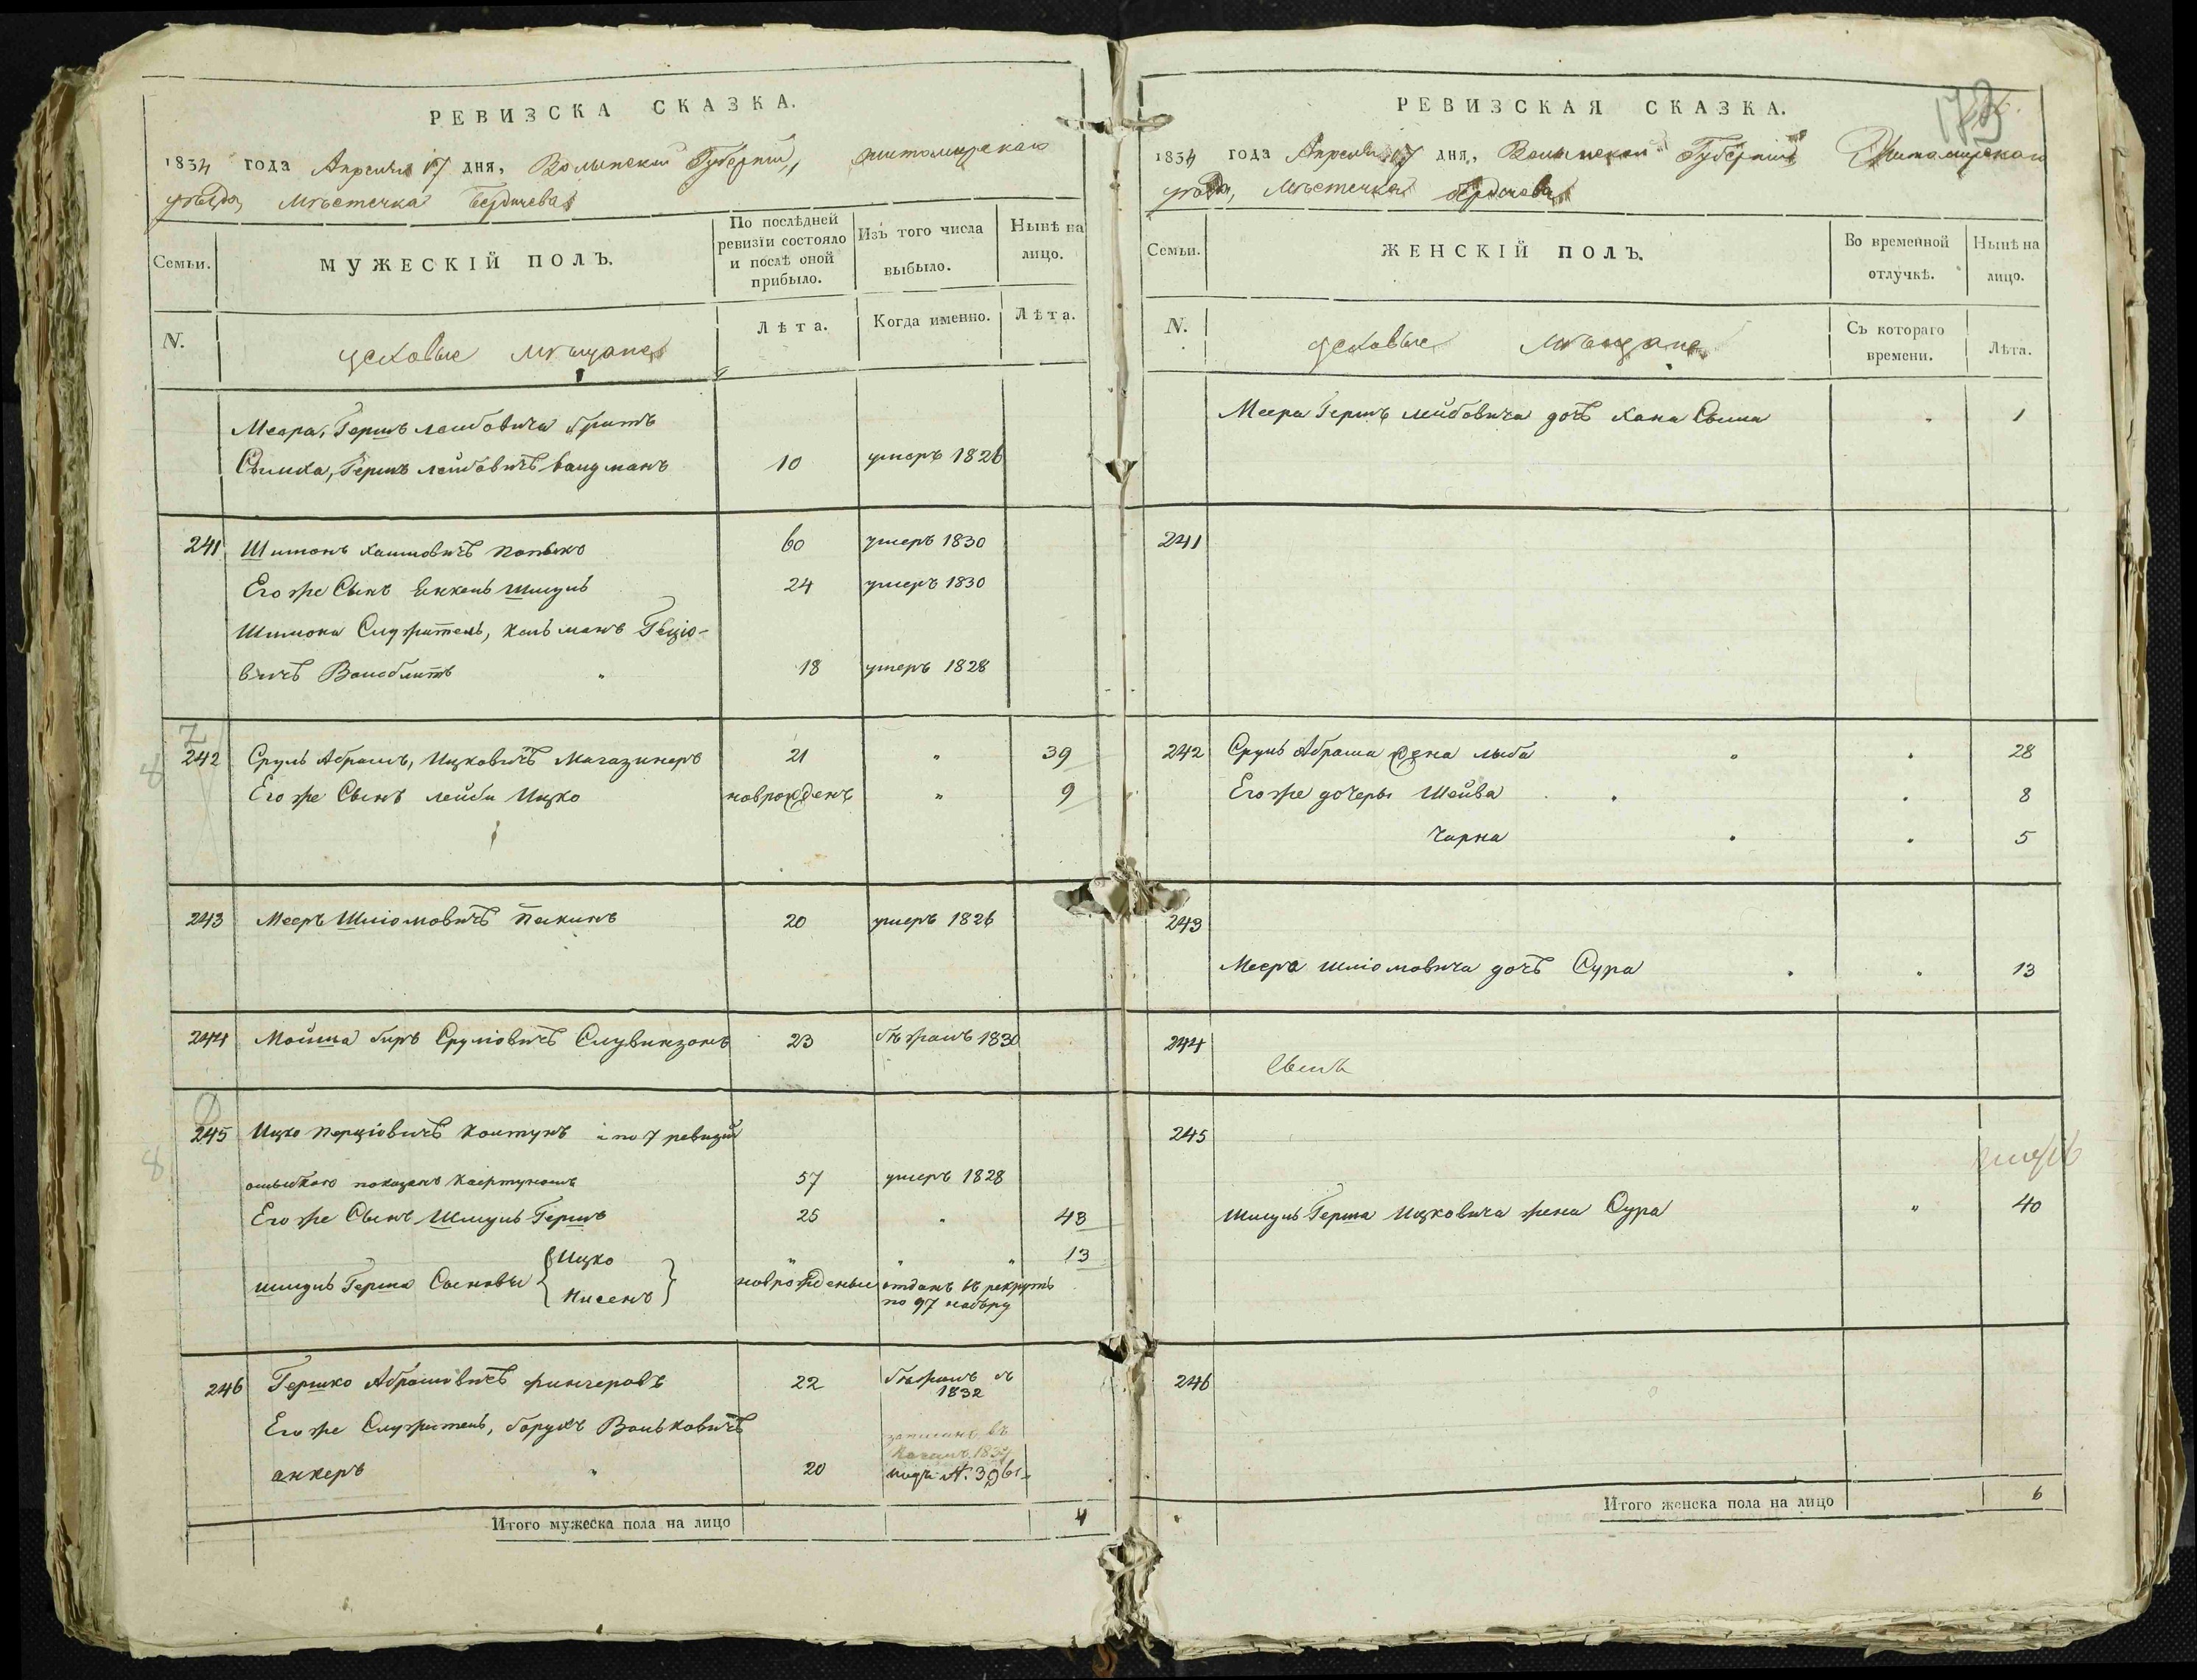 РЕВИЗСКА СКАЗКА.
1834 года Апреля 17 дня, Волынской Губерніи, Житомирскаго
уѣзда, Мѣстечка Бердичева
Семьи.
МУЖЕСКІЙ ПОЛЪ.
По послѣдней ревизіи состояло и послѣ оной прибыло.
Изъ того числа выбыло.
Нынѣ на лицо.
N.
цеховые мѣщане
Лѣта.
Когда именно.
Лѣта.
Меера, Гершъ Лейбовича братъ
Сымха, Гершъ Лейбовичъ 10 умеръ 1826
241 Шимонъ Хаимовичъ 60 умеръ 1830
Его же Сынъ Янкель Шмуль 24 умеръ 1830
Шимона Служитель, Кальманъ Гецiо-
вичъ 18 умеръ 1828
242 Сруль Абрамъ, Ицковичъ Магазинеръ 21 " 39
Его же Сынъ Лейба Ицко новрожденъ " 9
243 Мееръ Шліомовичъ 20 умеръ 1826
244 Мойша Беръ Сруліовичъ Слувинзонъ 23 бѣжалъ 1830
245 Ицко Перціовичъ Колтунъ а по 7 ревизіи
ошибкою показанъ 57 умеръ 1828
Его же Сынъ Шмуль Гершъ 25 " 43
Шмуль Герша Сыновья { Ицко " " " 13
Нисенъ } новрожденые отданъ въ рекруты
по 97 набору
246 Гершко Абрамовичъ 22 бѣжалъ въ
1832
Его же Служитель, Борухъ Вольковичъ
записанъ въ
1834
анкеръ " 20 подъ N. 3961
Итого мужеска пола на лицо 4
173
РЕВИЗСКАЯ СКАЗКА.
1834 года Апреля 17 дня, Волынской Губерніи Житомирскаго
уѣзда, Мѣстечка Бердичева
Семьи.
ЖЕНСКІЙ ПОЛЪ.
Во временной отлучкѣ.
Нынѣ на лицо.
N.
цеховые мѣщане
Съ котораго времени.
Лѣта.
Меера Гершъ Лейбовича дочь Хана Сыма " 1
241
242 Сруль Абрама жена Лыба " " 28
Его же дочеры Шейва " " 8
Чарна " " 5
243
Меера Шліомовича дочь Сура " " 13
244
245
Шмуль Герша Ицковича жена Сура " 40
246
Итого женска пола на лицо 6